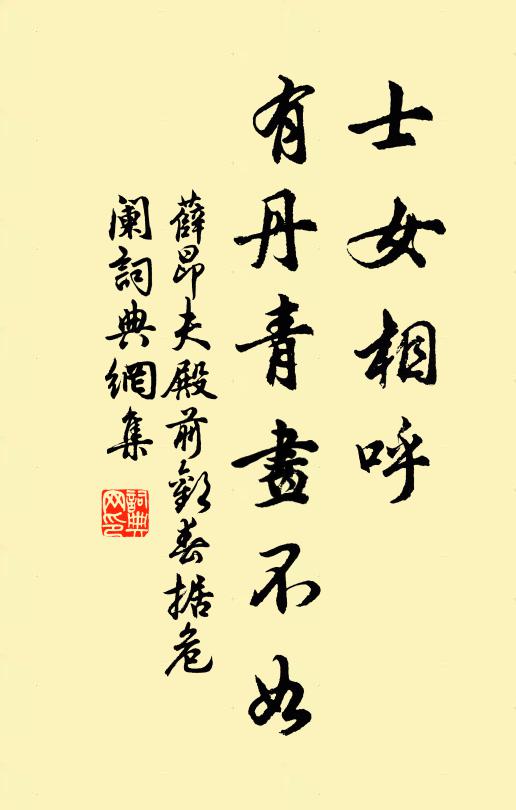 士女相呼
有丹青畫不如
薛昂夫殿前歡春据危
闌詞典網集
詞典
网印